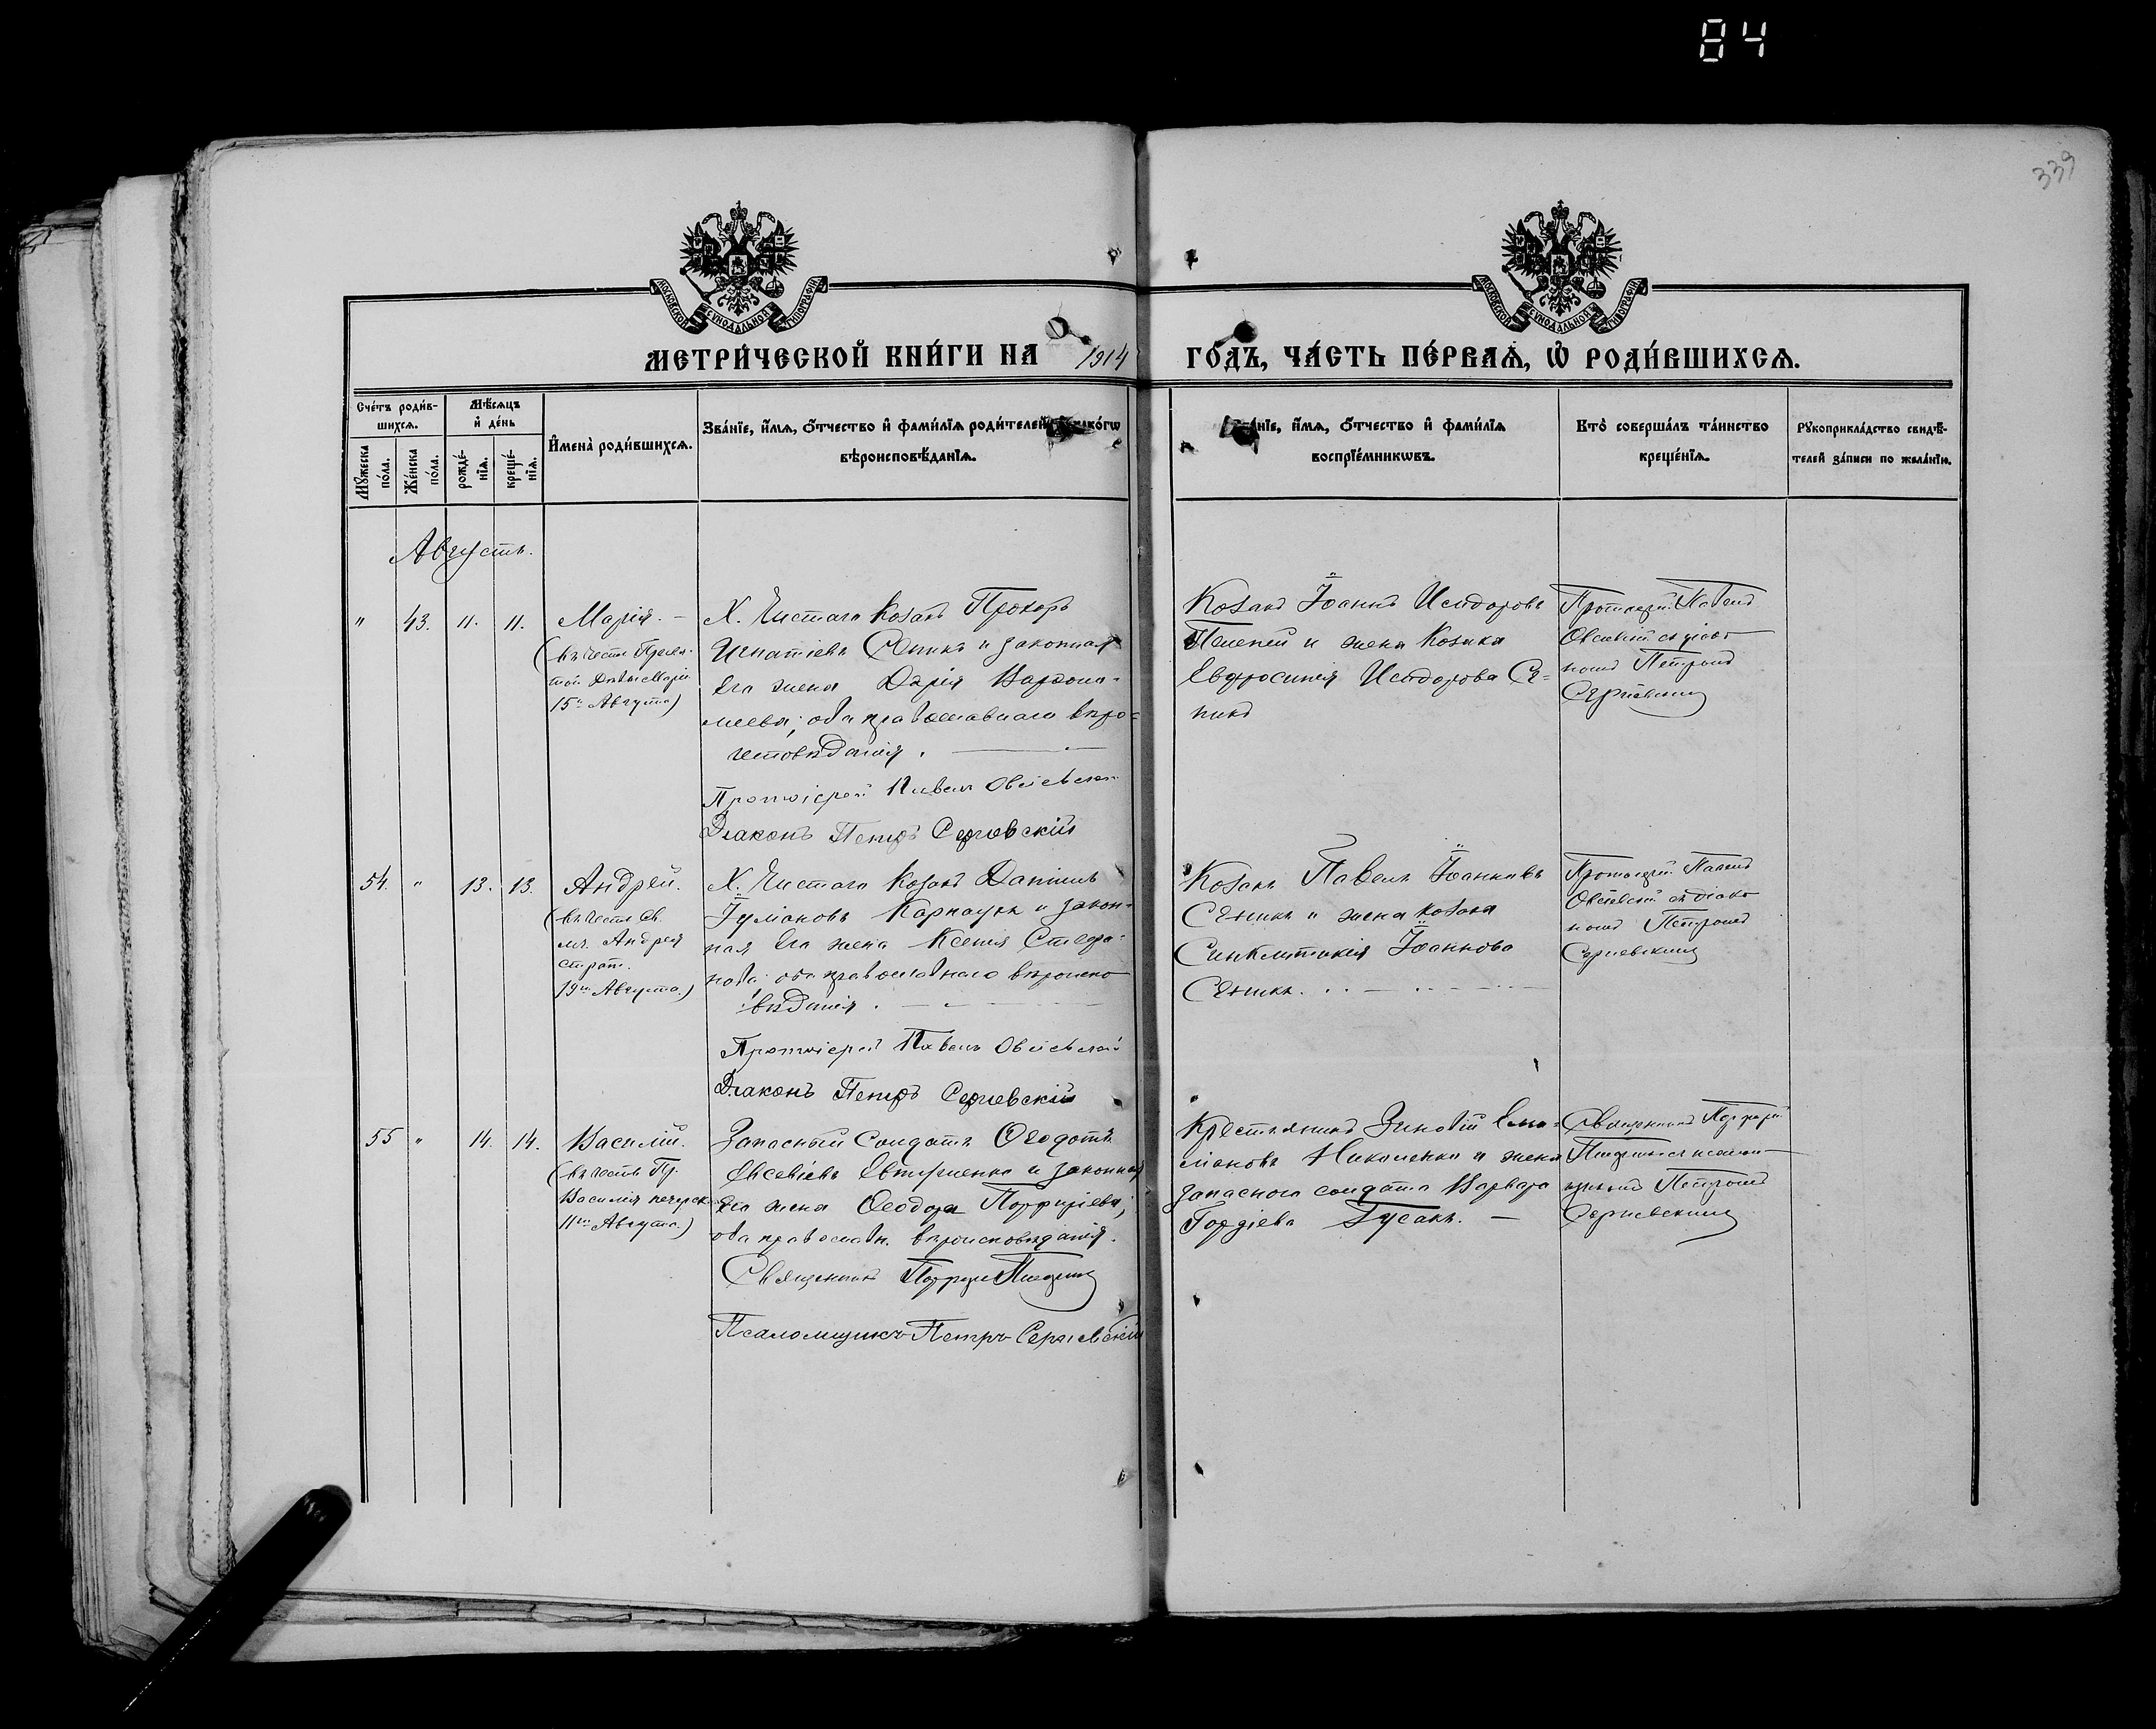 84
339
МОСКОВСКОЙ СѴНОДАЛЬНОЙ ТИПОГРАФІИ
МОСКОВСКОЙ СѴНОДАЛЬНОЙ ТИПОГРАФІИ
МЕТРИ́ЧЕСКОЙ КНИ́ГИ НА 1914 ГО́ДЪ, ЧА́СТЬ ПЕ́РВАѦ, Ѡ҆ РОДИ́ВШИХСѦ.
Сче́тъ роди́в-
шихсѧ.
Мꙋ́жеска по́ла.
Же́нска по́ла.
Мѣ́сѧцъ
и҆ де́нь
рожде́-
нїѧ.
креще́-
нїѧ.
И҆мена̀ роди́вшихсѧ.
Зва́нїе, и҆́мѧ, ѻ҆́тчество и҆ фами́лїѧ роди́телей,
вѣроисповѣ́данїѧ.
и҆́мѧ, ѻ҆́тчество и҆ фами́лїѧ
воспрїе́мникѡвъ.
Кто̀ соверша́лъ та́инство
креще́нїѧ.
Рꙋкоприкла́дство свидѣ́-
телей за́писи по жела́нїю.
Августъ.
" 43. 11. 11. Марія. -
(въ честь Пресвя-
той Дѣвы Маріи
15го Августа)
Х. Чистаго Козакъ Прохоръ
Игнатіевъ Сѣникъ и законная
его жена Дарія Варѳоло-
меева; оба православнаго вѣро-
исповѣданія.
Протоіерей Павелъ
Діаконъ Петръ Сергіевскій
Козакъ Іоаннъ Исидоровъ
Пелепей и жена Козака
Евфросинія Исидорова Сѣ-
никъ
Протоіерей Павелъ
съ діако-
номъ Петромъ
Сергіевскимъ
54. " 13. 13. Андрей.
(въ честь Св.
мч. Андрея
Страт.
19го Августа.)
Х. Чистаго Козакъ Даніилъ
Іуліановъ и закон-
ная его жена Ксенія Стефа-
нова; оба православнаго вѣроиспо-
вѣданія.
Протоіерей Павелъ
Діаконъ Петръ Сергіевскій
Козакъ Павелъ Іоанновъ
Сѣникъ и жена козака
Синклитикія Іоаннова
Сѣникъ.
Протоіерей Павелъ
съ діако-
номъ Петромъ
Сергіевскимъ
55 " 14. 14. Василій.
(въ честь Пр.
Василія печерск.
11го Августа.)
Запасный Солдатъ Ѳеодотъ
Евсевіевъ Евтушенко и законная
его жена Ѳеодора Порфиріева;
оба православн. вѣроисповѣданія.
Священникъ
Псаломщикъ Петръ Сергіевскій
Крестьянинъ Зиновій Еми-
ліановъ Николенко и жена
запаснаго солдата Варвара
Гордіева Гусакъ. -
Священникъ
Петромъ
Сергіевскимъ